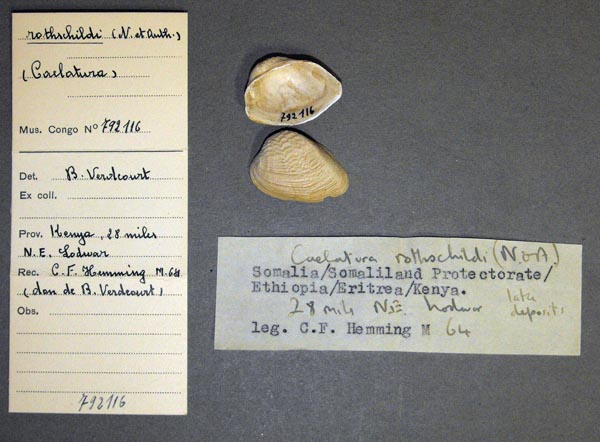 rothschildi (N. et Anth.)
(Caelatura)
Mus. Congo No 792116
Det. B. Verdcourt
Ex coll.
Prov. Kenya, 28 miles
N.E. Lodwar
Rec. C.F. Hemming M.64
(don de B. Verdcourt)
Obs.
792116
792116
Caelatura rothschildi (N & A)
Somalia/Somaliland Protectorate/
Ethiopia/Eritrea/Kenya.
28 mile NE Lodwar
deposits
leg. C.F. Hemming M 64